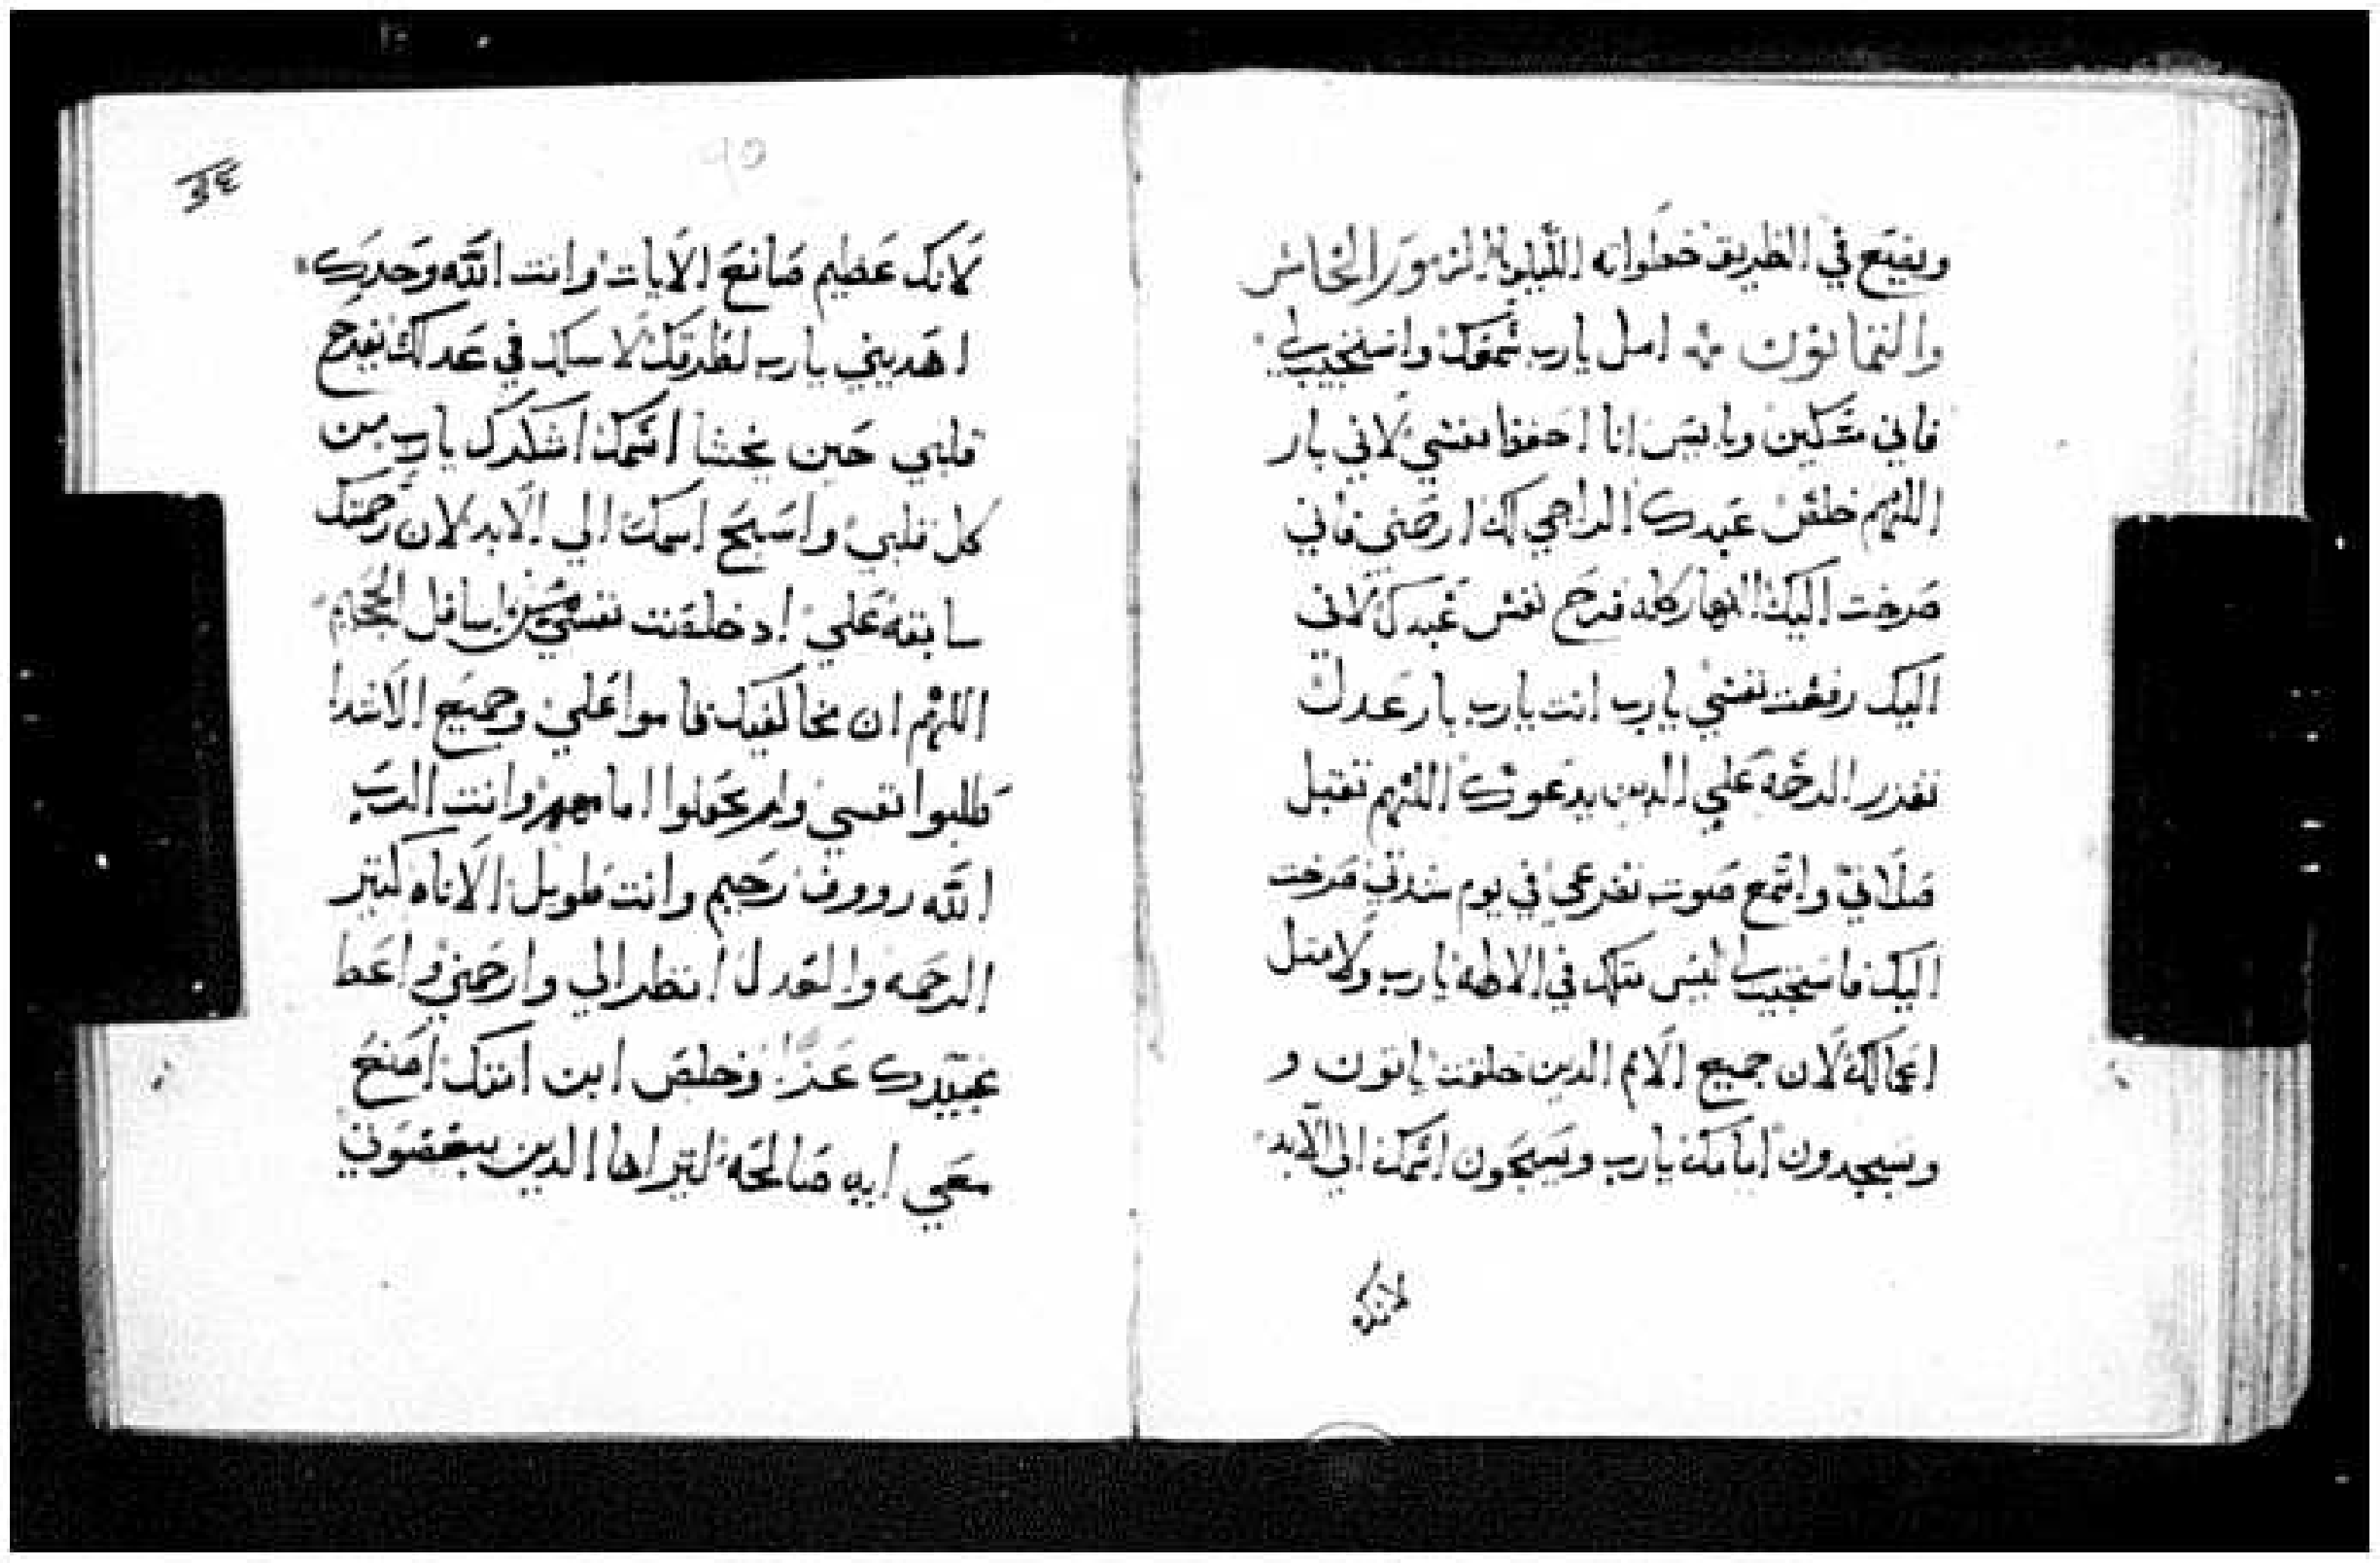 ويضع في الطريق خطواته الليلويا المزمور الخامس
والثمانون امل يارب سمعك واستجيب لي
فاني مسكين وبايس انا احفظ نفسي لاني بار
اللهم خلص عبدك الراجي لك ارحمني فاني
صرخت اليك النهار كله فرح نفس عبدك لاني
اليك رفعت نفسي يارب انت يارب بار عدلك
تغزر الرحمه علي الدين يدعوك اللهم تقبل
صلاتي واسمع صوت تضرعي في يوم شدتي صرخت
اليك فاستجيب لي ليس مثلك في الالهه يارب ولا مثل
اعمالك لان جميع الامم الدين خلقت ياتون و
ويسجدون امامك يارب ويسبحون اسمك الي الابد
لانك
٩٥
لانك عظيم صانع الايات وانت الله وحدك
اهديني يارب لطريقك لاسلك في عدلك يفرح
قلبي حين يخشا اسمك اشكرك يارب من
كل قلبي واسبح اسمك الي الابد لان رحمتك
سابقه علي اد خلصت نفسي من اسافل الجحيم
اللهم ان مخالفيك قاموا علي وجميع الاشدا
طلبوا نفسي ولم يجعلوا امامهم وانت الرب
الله رووف رحيم وانت طويل الاناه كتير
الرحمه والعدل انظر الي وارحمني واعط
عبيدك عزا وخلص ابن امتك اصنع
معي ايه صالحه ليراها الدين يبغضوني